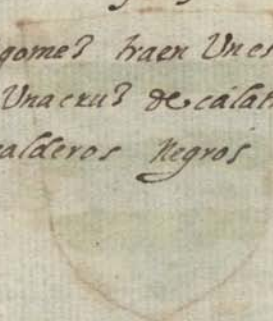 gomez traen Un es
Una cruz de calat
alderos Negros